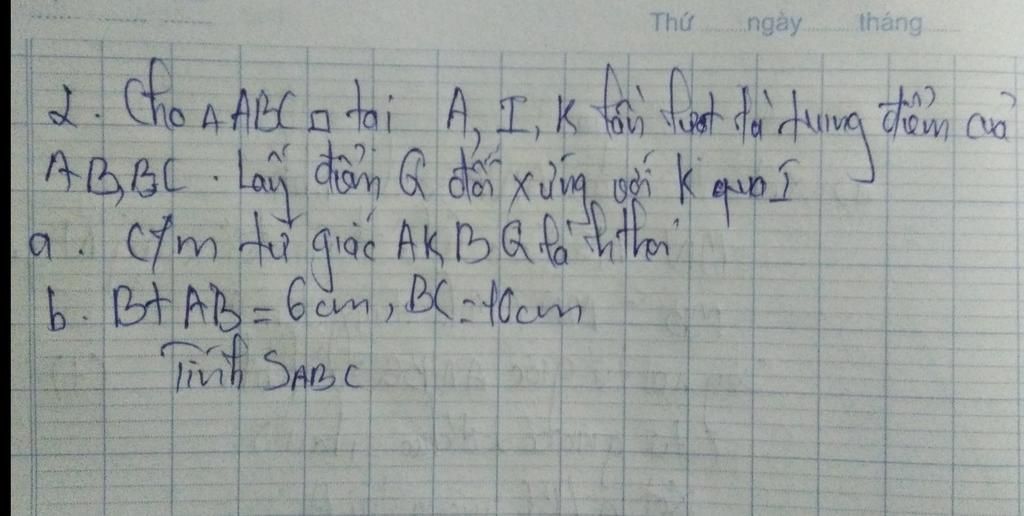 Thứ ngày tháng
2. Cho Δ ABC □ tại A, I, K lần lượt là trung điểm của
AB, BC. Lấy điểm Q đối xứng với K qua I
a. C/m tứ giác AKBQ là h thoi
b. Bt AB = 6 cm, BC = 10 cm
Tính SABC